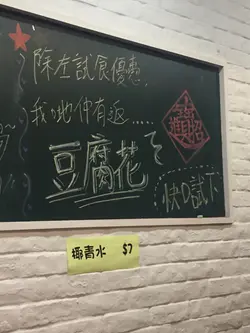 除左試食優惠,
我哋仲有返......
豆腐花
快D試下
椰青水 $7